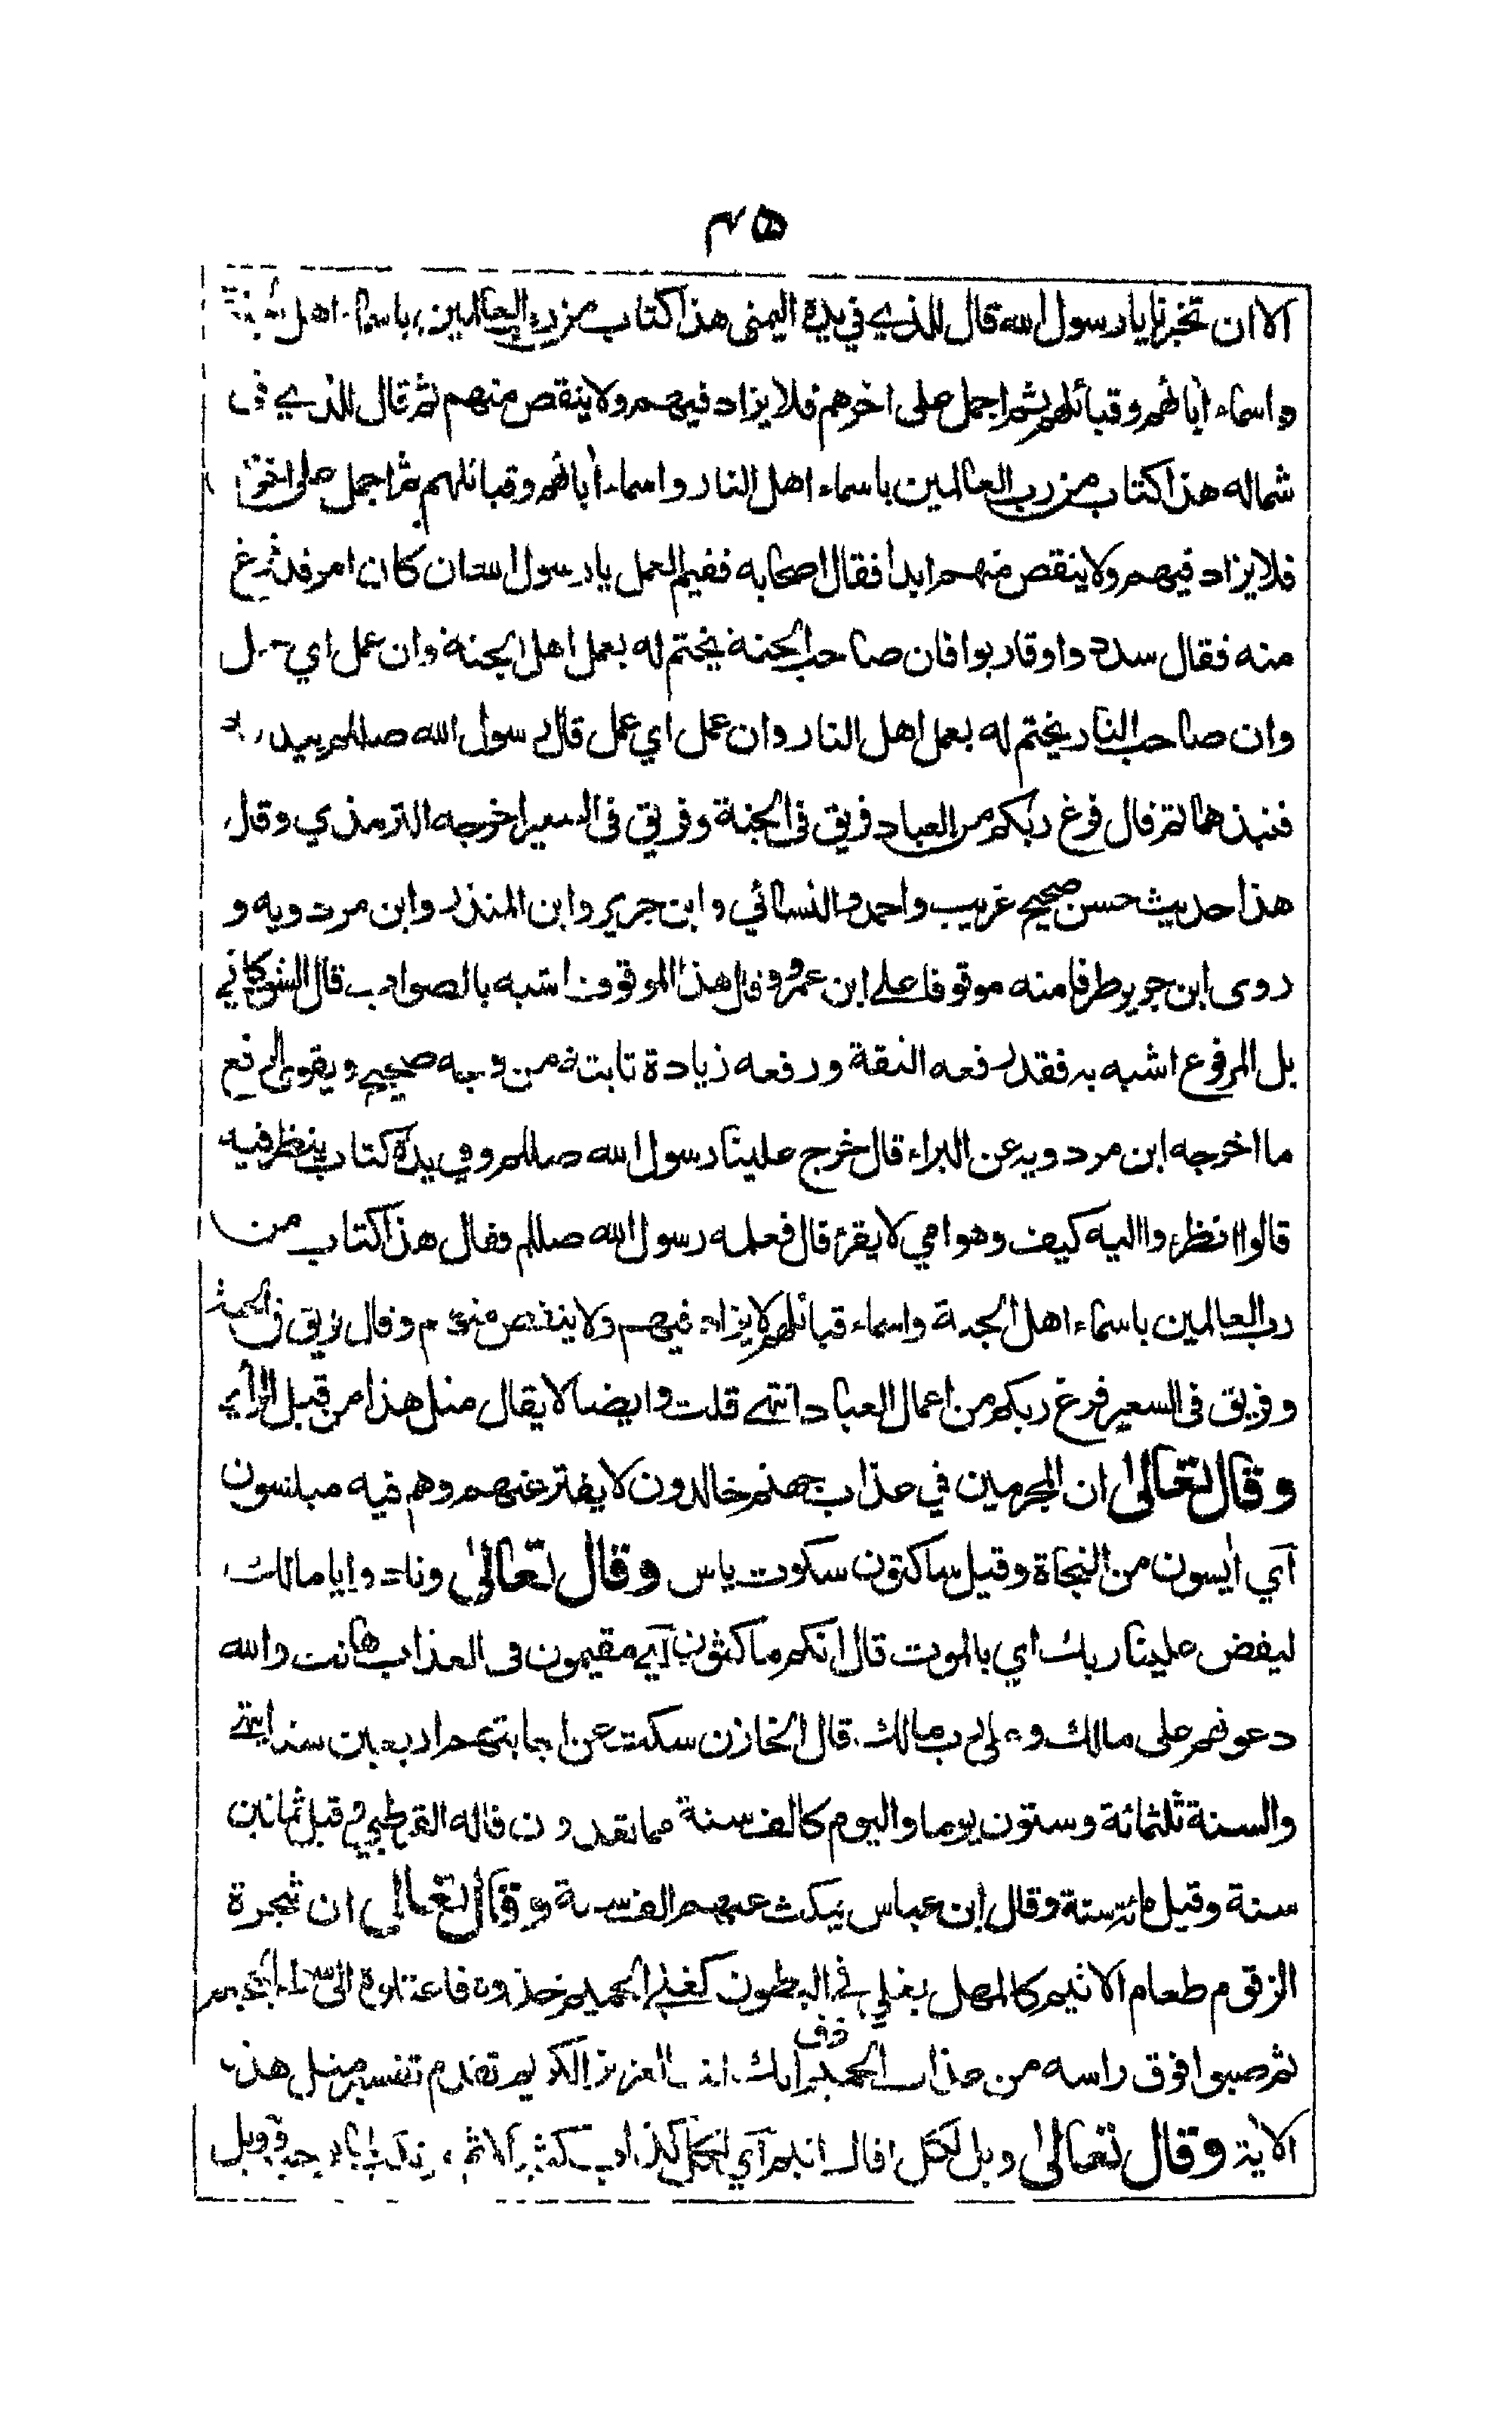 ٤٥
الا ان تخبرنا يا رسول الله قال للذي في يده اليمنى هذا كتاب من رب العالمين باسماء اهل الجنة
واسماء ابائهم وقبائلهم ثم اجمل على اخرهم فلا يزاد فيهم ولا ينقص منهم ثم قال للذي في
شماله هذا كتاب من رب العالمين باسماء اهل النار واسماء ابائهم وقبائلهم ثم اجمل على اخرهم
فلا يزاد فيهم ولا ينقص منهم ابدا فقال اصحابه ففيم العمل يا رسول الله ان كان امر قد فرغ
منه فقال سددوا وقاربوا فان صاحب الجنة يختم له بعمل اهل الجنة وان عمل اي عمل
وان صاحب النار يختم له بعمل اهل النار وان عمل اي عمل قال رسول الله صللم بيديه
فنبذهما ثم قال فرغ ربكم من العباد فريق في الجنة وفريق في السعير اخرجه الترمذي وقال
هذا حديث حسن صحيح غريب واحمد والنسائي وابن جرير وابن المنذر وابن مردويه و
روى ابن جرير طرفا منه موقوفا على ابن عمرو وقال هذا الموقوف اشبه بالصواب قال الشوكاني
بل المرفوع اشبه به فقد رفعه الثقة ورفعه زيادة ثابتة من وجه صحيح ويقوي الرفع
ما اخرجه ابن مردويه عن البراء قال خرج علينا رسول الله صللم وفي يده كتاب ينظر فيه
قالوا انظروا اليه كيف وهو امي لا يقرء قال فعلمه رسول الله صللم فقال هذا كتاب من
رب العالمين باسماء اهل الجنة واسماء قبائلهم لا يزاد فيهم ولا ينقص منهم وقال فريق في الجنة
وفريق في السعير فرغ ربكم من اعمال العباد انتهى قلت وايضا لا يقال مثل هذا من قبل الرأي
وقال تعالى ان المجرمين في عذاب جهنم خالدون لا يفتر عنهم وهم فيه مبلسون
آي ايسون من النجاة وقيل ساكتون سكوت ياس وقال تعالى ونادوا يا مالك
ليقض علينا ربك اي بالموت قال انكم ماكثون آي مقيمون في العذاب هانت والله
دعوتهم على مالك وعلى رب مالك قال الخازن سكت عن اجابتهم اربعين سنة انتهى
والسنة ثلثمائة وستون يوما واليوم كالف سنة مما تعدون قاله القرطبي وقيل ثمانين
سنة وقيل مائة سنة وقال ابن عباس يمكث عنهم الف سنة وقال تعالى ان شجرة
الزقوم طعام الاثيم كالمهل يغلي في البطون كغلي الحميم خذوه فاعتلوه الى سواء الجحيم
ثم صبوا فوق راسه من عذاب الحميم ذق انك انت العزيز الكريم تقدم تفسير مثل هذه
الاية وقال تعالى ويل لكل افاك اثيم آي لكل كذاب كثير الاثم وويل